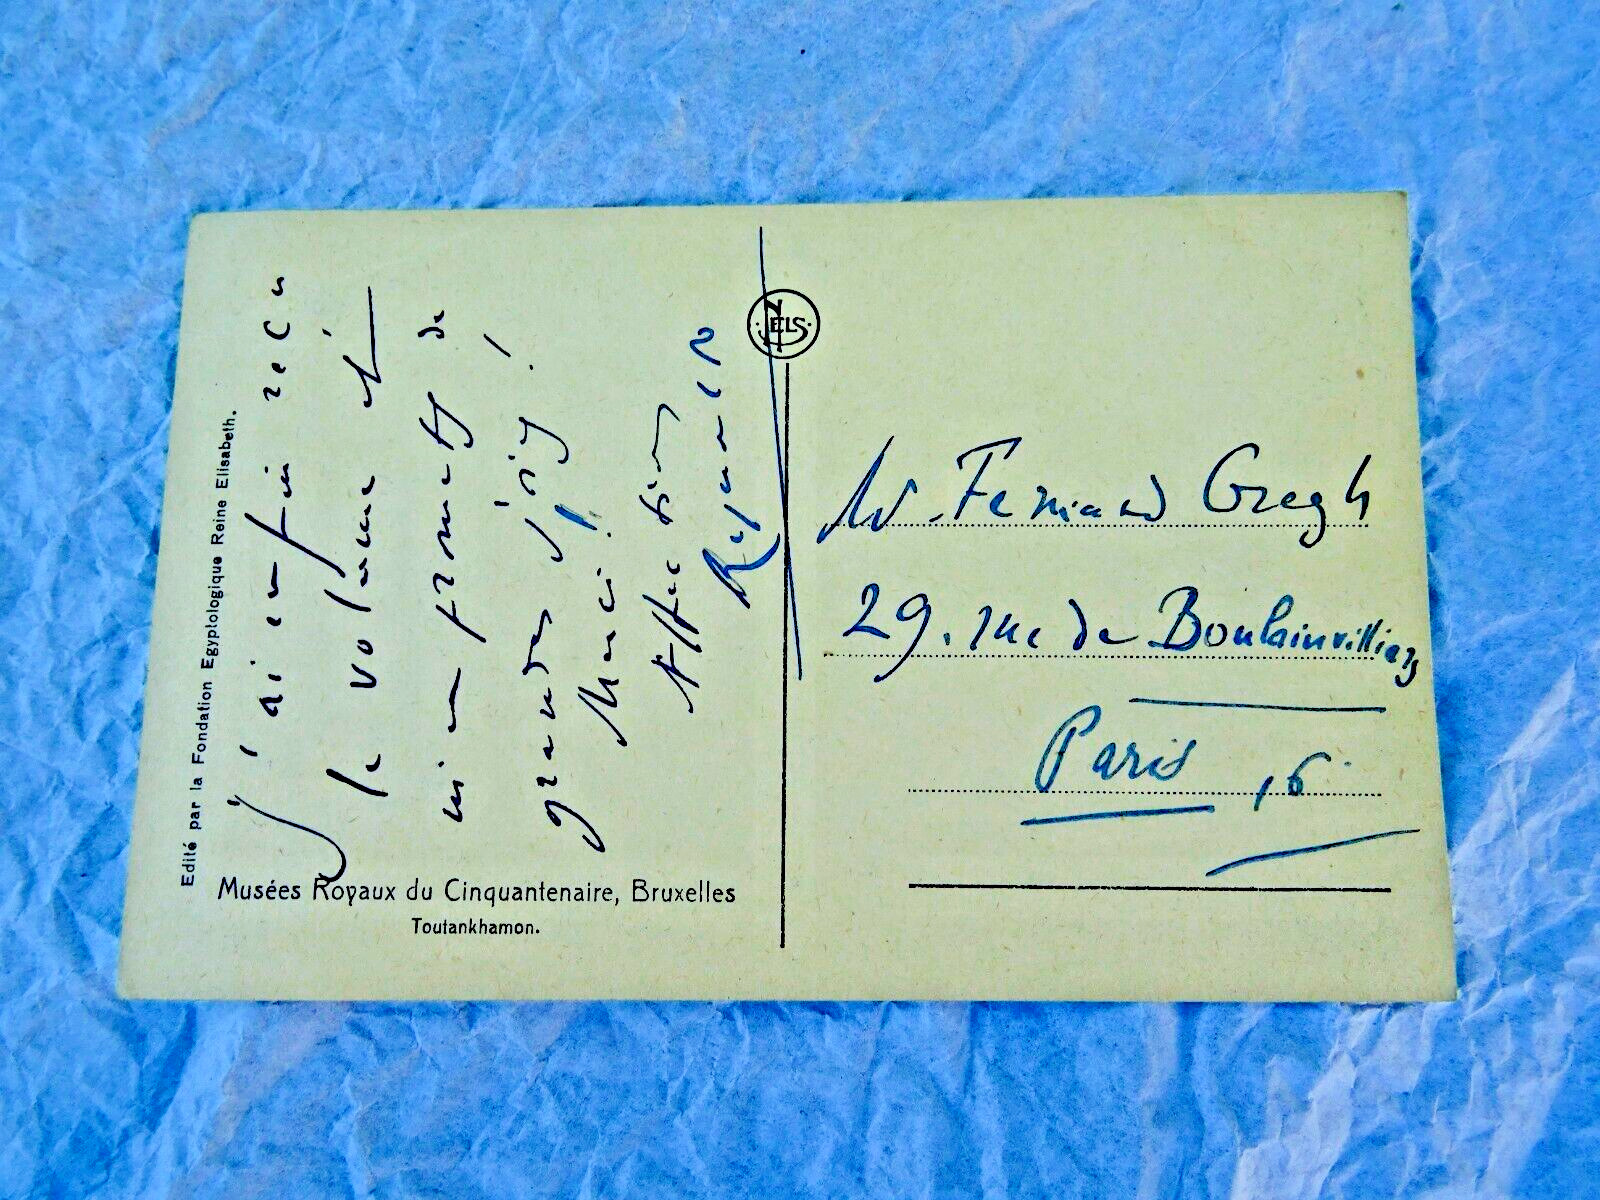 Edité par la Fondation Egyptologique Reine Elisabeth.
J'ai enfin reçu
le volume et
m'en promets de
grandes joies!
Merci!
Affec. bien
Musées Royaux du Cinquantenaire, Bruxelles
Toutankhamon.
NELS
M. Fernand Gregh
29. rue de Boulainvilliers
Paris, 16